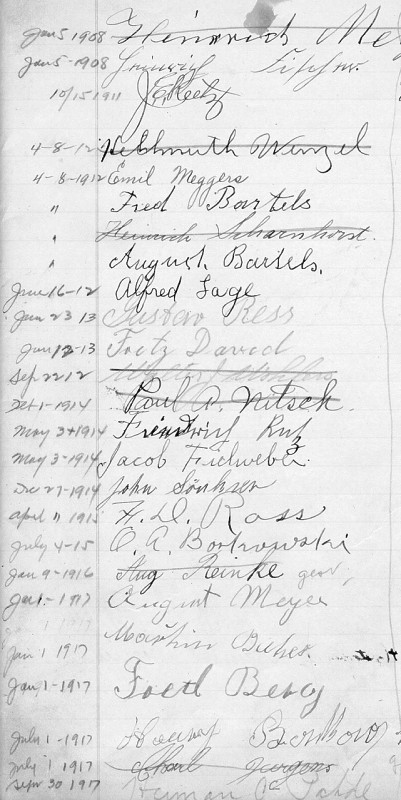 Jan 5 1908 Heinrich Me
Jan 5-1908 Heinrich Fischer.
10/15 1911 J. E. Reetz
4-8-12 Hellmuth Wenzel
4-8-1912 Emil Meggers
" Fred Bartels
" Heinrich Scharnhorst.
" August. Bartels.
June 16-12 Alfred Lage
Jan 23 13 Gustav Ress
Jan 12-13 Fritz David
Sep 22 12
Oct 1-1914 Paul A. Nitsch.
May 3 1914 Friedrich
May 3-1914 Jacob
Dec 27-1914 John Sönksen
April 11 1915 H. D. Ross
July 4-15 O. A. Borkowski
Jan 9-1916 Aug Reinke
Jan 1- 1917 August Meyer
Jan 1 1917 Martin
Jan 1-1917 Fred Berg
July 1-1917
July 1 1917 Charl Jurgens
Sept 30 1917 Herman